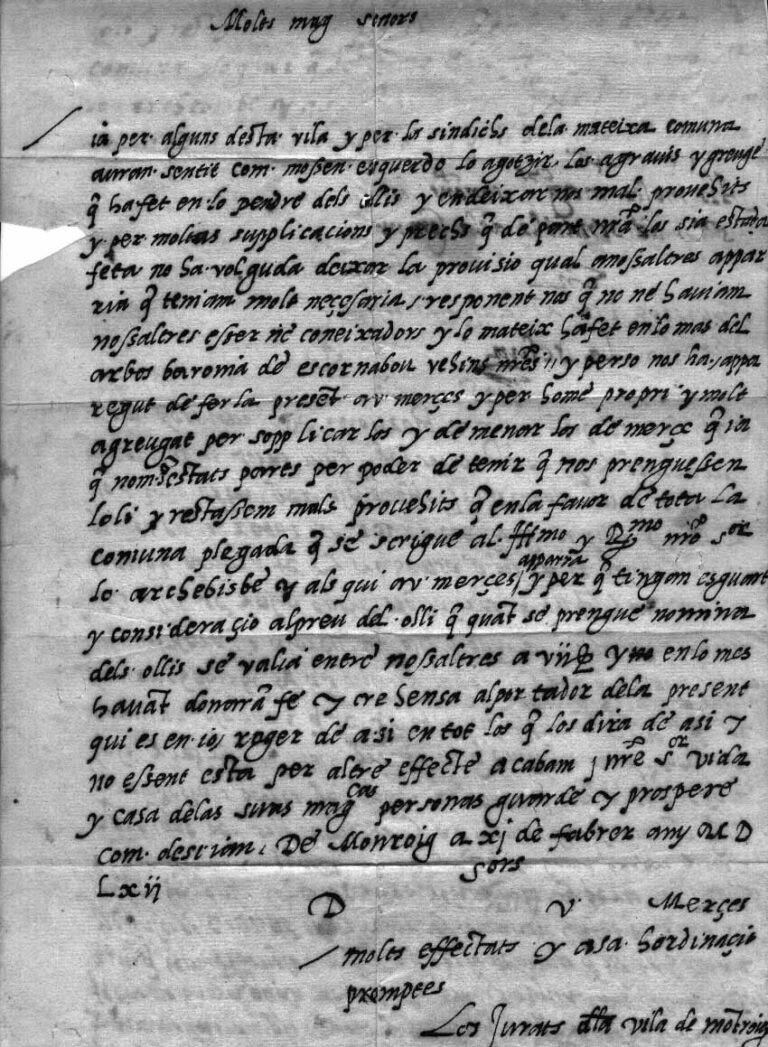 Molts mag senors
ia per alguns desta vila y per los sindichs dela mateixa comuna
auran sentit com mossen esquerdo lo agotzir los agravis y greuge
q̃ ha fet en lo pendre dels ollis y en deixar nos mal provehits
y per moltas supplicacions y prechs q̃ de part nr̃a los sia estada
feta no ha volguda deixar la provisio qual a nossaltres appar
ria q̃ teniam molt neçesaria responent nos q̃ no ne haviam
nossaltres esser ne coneixadors y lo mateix ha fet en lo mas del
arbos baronia de escornabou vehins nr̃es y perso nos ha appa
regut de fer la present a v merçes y per home propri y molt
agreugat per sopplicar los y demenar los de merçe q̃ ia
q̃ nom estats parres per poder de tenir q̃ nos prenguessen
loli y restassem mals provehits q̃ en la favor de tota la
comuna plegada q̃ se scrigue al Illmo y Rmo nr̃o sor
lo archebisbe y als qui a v merçes apparra y per q̃ tingan esguart
y consideraçio al preu del olli q̃ quãt se prengue nomina
dels ollis se valia entre nossaltres a vii y en lo mes
havãt donarã fe y crehensa al portador dela present
qui es en roger de asi en tot los q̃ los dira de asi y
no essent esta per altre effecte acabam nr̃e sor vida
y casa delas suas magcas personas guarde y prospere
com desijan De Monroig a xj de fabrer any M D
Lxij
sors
D v Merçes
molts effectats y a sa hordinaçio
promptes
Los Jurats dla vila de montroig